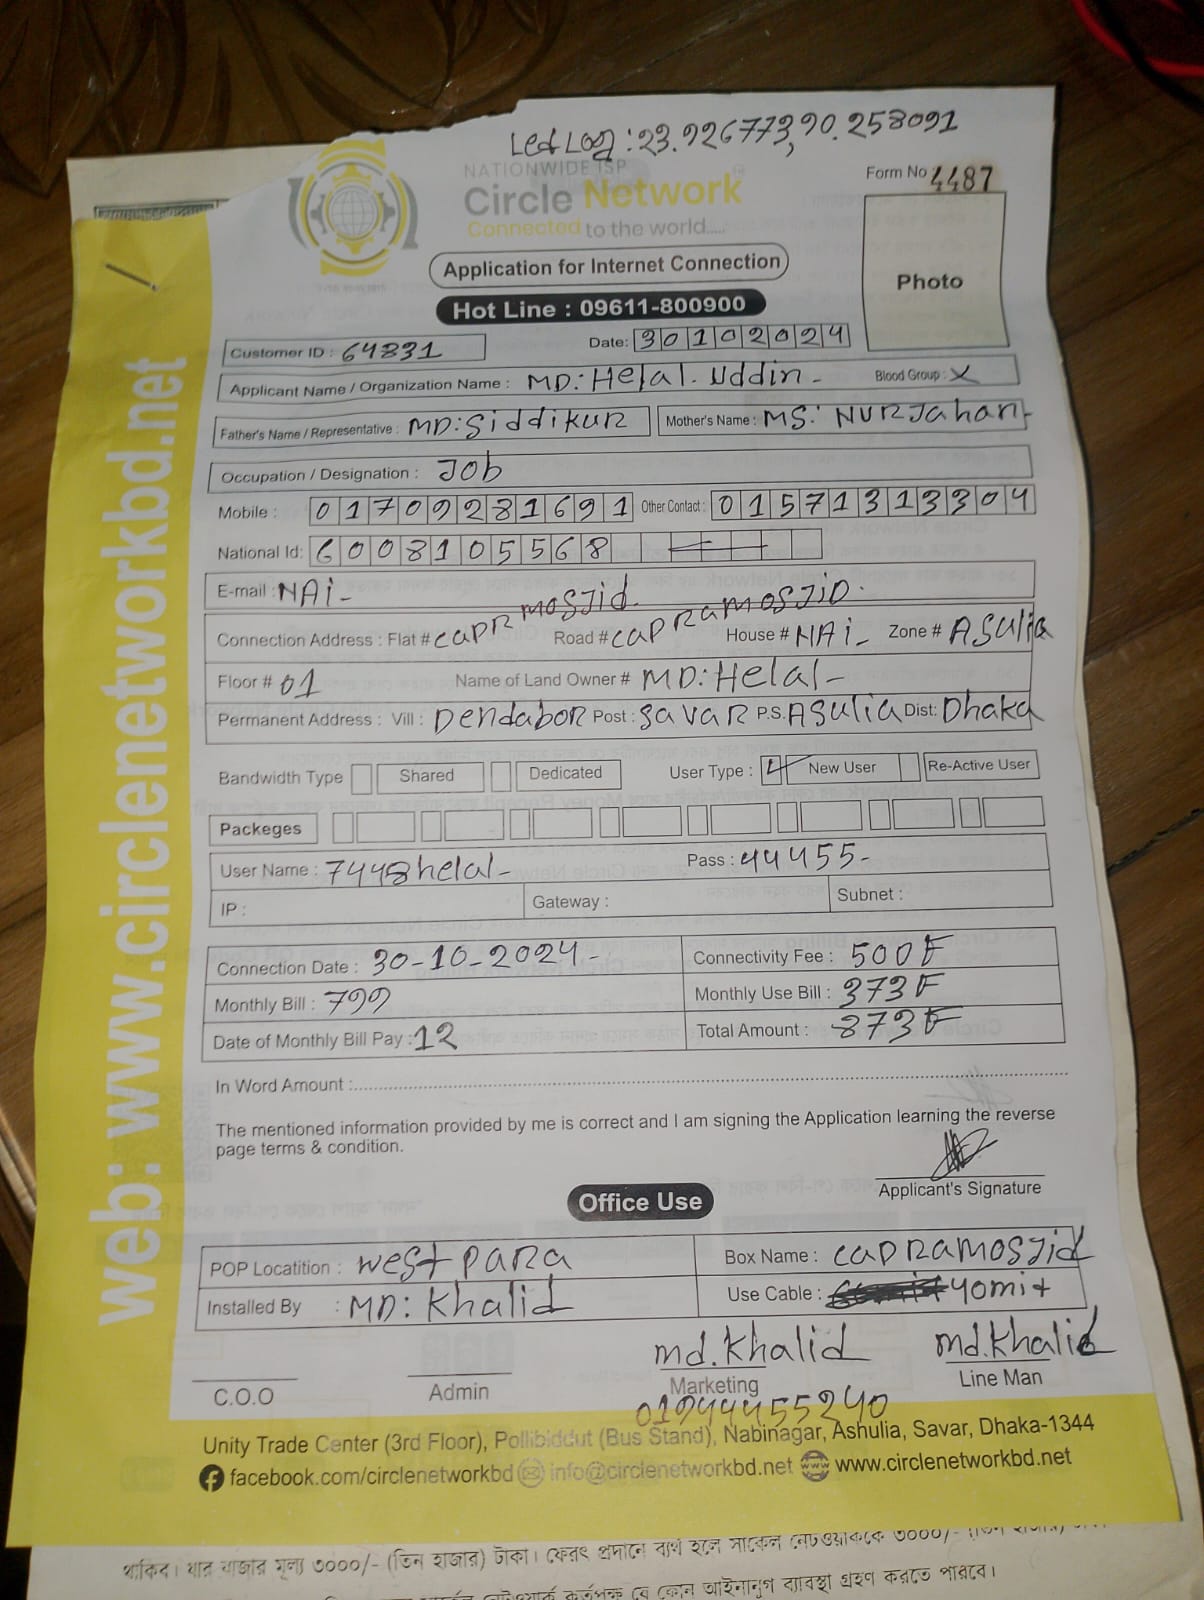 Led Log : 23.926773, 90.258091
NATIONWIDE ISP
Circle Network
Connected to the world.....
Form No 4487
Photo
Application for Internet Connection
Hot Line : 09611-800900
Customer ID : 64831 Date: 30102024
Applicant Name / Organization Name : MD: Helal. Uddin - Blood Group : X
Father's Name / Representative : MD: Siddikur Mother's Name : MS: NURJahan-
Occupation / Designation : JOb
Mobile : 01709281691 Other Contact : 01571313304
National Id: 6008105568
E-mail : NAi-
Connection Address : Flat # capR mosjid Road # capRAMOSJID. House # NAi- Zone # ASulia
Floor # 01 Name of Land Owner # MD: Helal-
Permanent Address : Vill : Dendabor Post : SavaR P.S. ASulia Dist: Dhaka
Bandwidth Type Shared Dedicated User Type : New User Re-Active User
Packeges
User Name : 7448helal- Pass : 44455-
IP : Gateway : Subnet :
Connection Date : 30-10-2024- Connectivity Fee : 500F
Monthly Bill : 799 Monthly Use Bill : 373F
Date of Monthly Bill Pay : 12 Total Amount : 873F
In Word Amount :
The mentioned information provided by me is correct and I am signing the Application learning the reverse
page terms & condition.
Applicant's Signature
Office Use
POP Locatition : west paRa Box Name : capRAMOSJid
Installed By : MD: Khalid Use Cable : 40mit
md.khalid md.khalid
C.O.O Admin Marketing Line Man
01944455240
Unity Trade Center (3rd Floor), Pollibiddut (Bus Stand), Nabinagar, Ashulia, Savar, Dhaka-1344
facebook.com/circlenetworkbd info@circlenetworkbd.net www.circlenetworkbd.net
web: www.circlenetworkbd.net
থাকিব। যার বাজার মূল্য ৩০০০/- (তিন হাজার) টাকা। ফেরৎ প্রদানে ব্যর্থ হলে সার্কেল নেটওয়ার্ককে ৩০০০/- (তিন হাজার)
কর্তৃপক্ষ যে কোন আইনানুগ ব্যবস্থা গ্রহণ করতে পারবে।